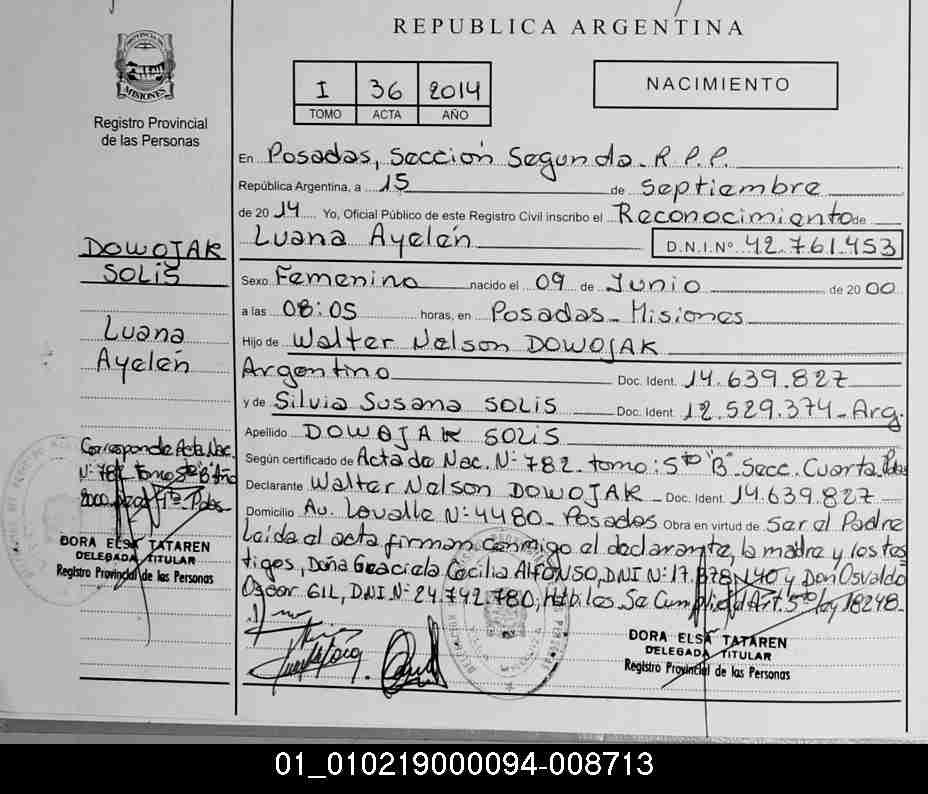 REPUBLICA ARGENTINA
PROVINCIA DE
MISIONES
Registro Provincial
de las Personas
I 36 2014
TOMO ACTA AÑO
NACIMIENTO
En Posadas, Sección Segunda. R.P.P.
República Argentina, a 15 de Septiembre
de 2014 Yo, Oficial Público de este Registro Civil inscribo el Reconocimiento de
Luana Ayelén D.N.I.Nº 42.761.453
Sexo Femenino nacido el 09 de Junio de 2000
a las 08:05 horas, en Posadas - Misiones
Hijo de Walter Nelson DOWOJAK
Argentino Doc. Ident. 14.639.827
y de Silvia Susana SOLIS Doc. Ident. 12.529.374 - Arg.
Apellido DOWOJAK SOLIS
Según certificado de Acta de Nac. Nº 782 tomo: 5to "B" Secc. Cuarta Pdas
Declarante Walter Nelson DOWOJAK - Doc. Ident. 14.639.827
Domicilio Av. Lavalle Nº 4480 - Posadas Obra en virtud de Ser el Padre
Leída el acta firman conmigo el declarante, la madre y los tes
tigos, Doña Graciela Cecilia ALFONSO, DNI Nº 17.878.140 y Don Osvaldo
Oscar GIL, DNI Nº 24.742.780; Se Cumplió el Art. 5to ley 18248-
DORA ELSA TATAREN
DELEGADA TITULAR
Registro Provincial de las Personas
DOWOJAK
SOLIS
Luana
Ayelén
Corresponde Acta Nac.
Nº 782 tomo 5to "B" Año
2000
DORA ELSA TATAREN
DELEGADA TITULAR
Registro Provincial de las Personas
01_010219000094-008713